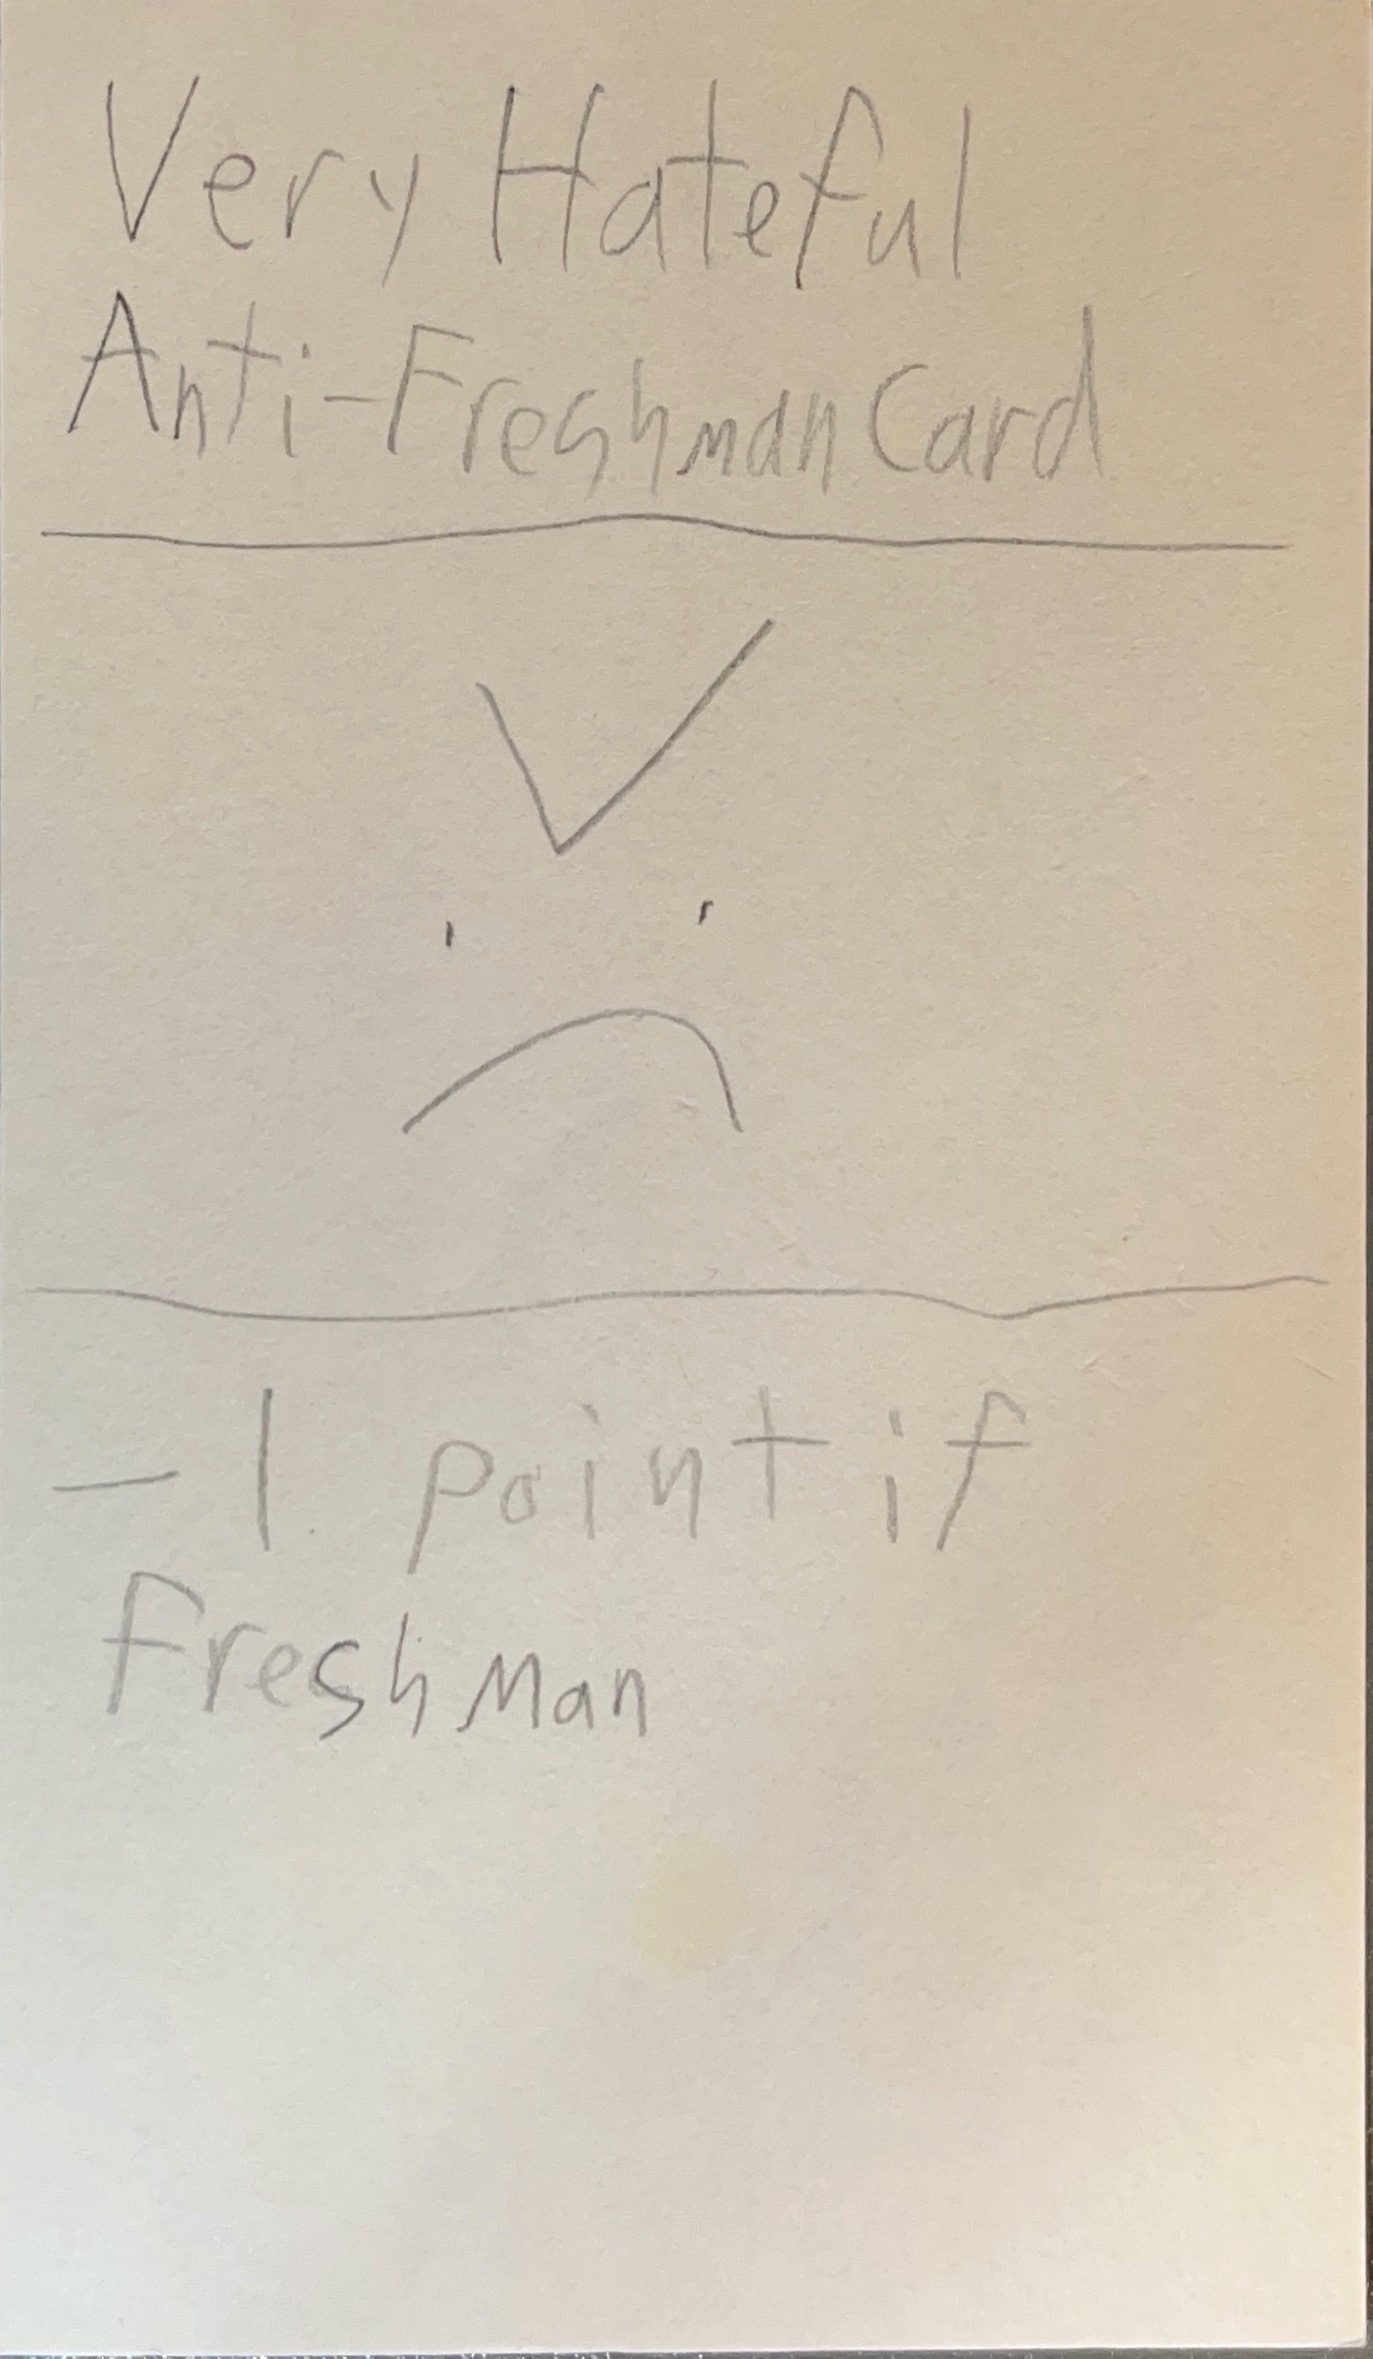 Very Hateful
Anti-Freshman Card
-1 point if
Freshman